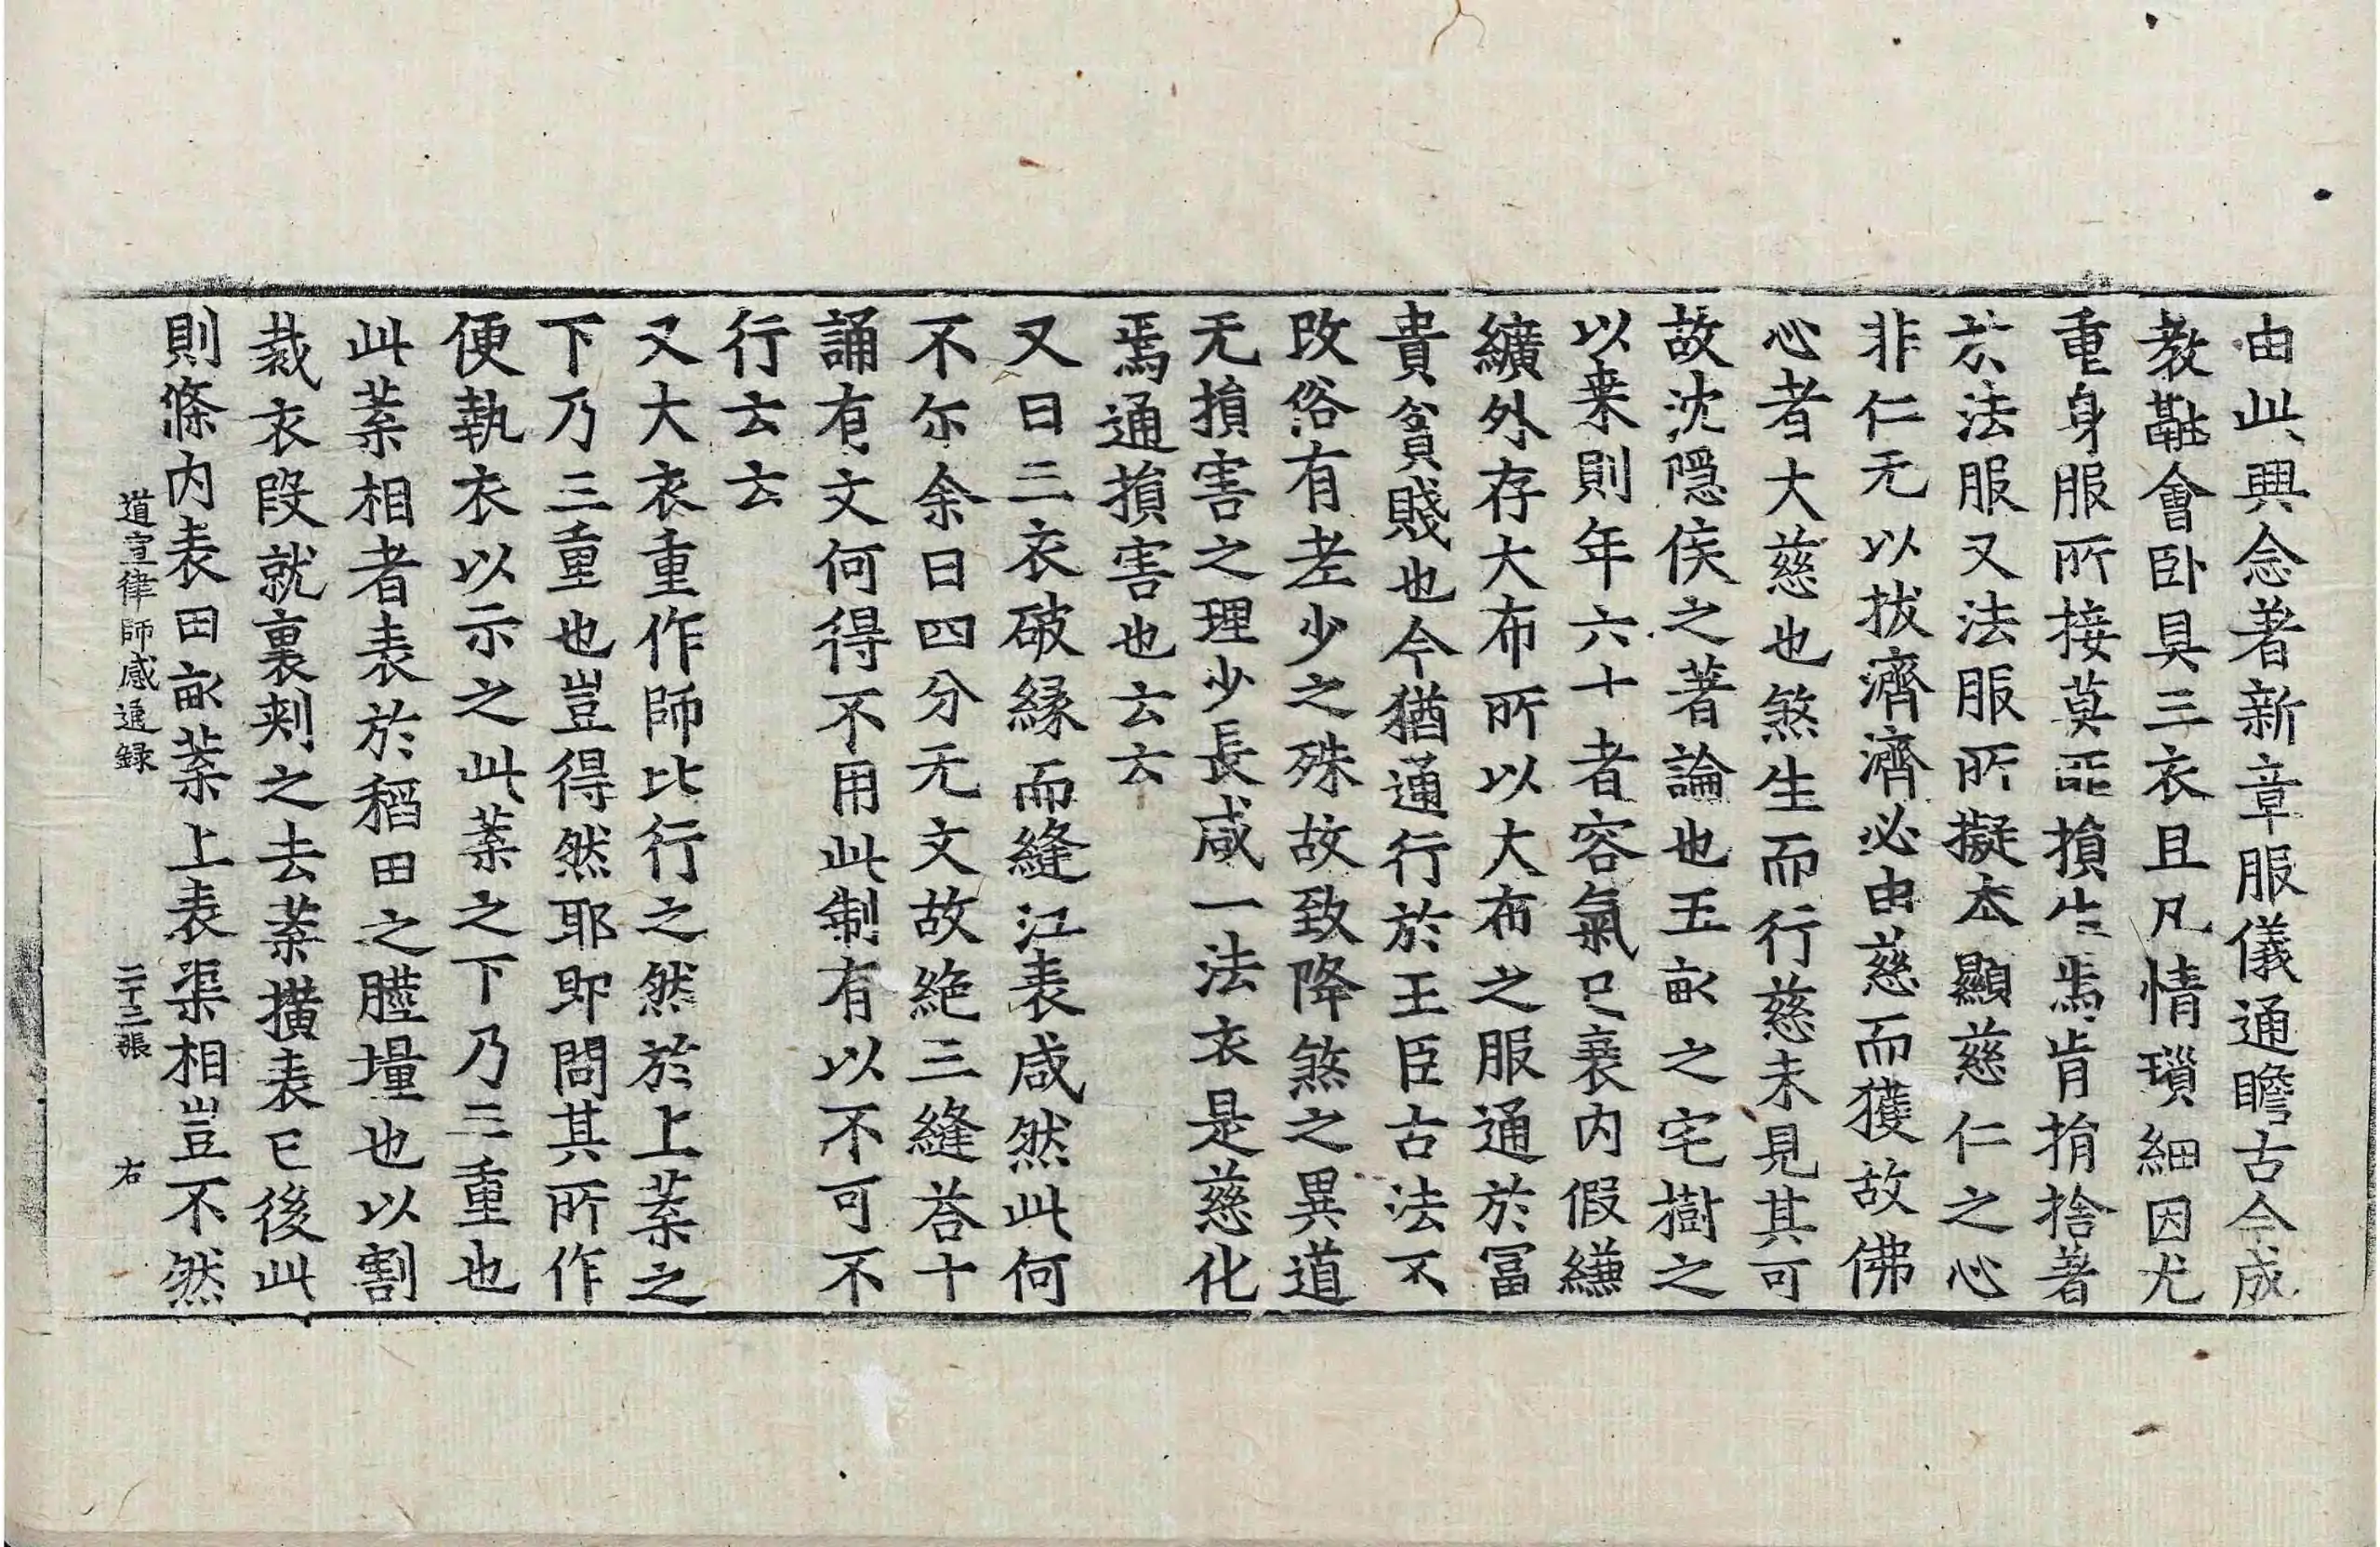 由此興念著新章服儀通瞻古今成
教融會卧具三衣且凡情瑣細因尤
重身服所接莫不損生焉肯捐捨著
於法服又法服所擬本顯慈仁之心
非仁无以拔濟濟必由慈而獲故佛
心者大慈也煞生而行慈未見其可
故沈隱侯之著論也五畝之宅樹之
以来則年六十者容氣已衰內假縑
纊外存大布所以大布之服通於冨
貴貧賤也今猶通行於王臣古法不
改俗有差少之殊故致降煞之異道
无損害之理少長咸一法衣是慈化
焉通損害也云云
又曰三衣破緣而縫江表咸然此何
不尔余曰四分无文故絶三縫荅十
誦有文何得不用此制有以不可不
行云云
又大衣重作師比行之然於上葉之
下乃三重也豈得然耶即問其所作
便執衣以示之此葉之下乃三重也
此葉相者表於稻田之塍壃也以割
裁衣段就裏刺之去葉𪍿表已後此
則條內表田畝葉上表渠相豈不然
道宣律師感通録 二十二張 右